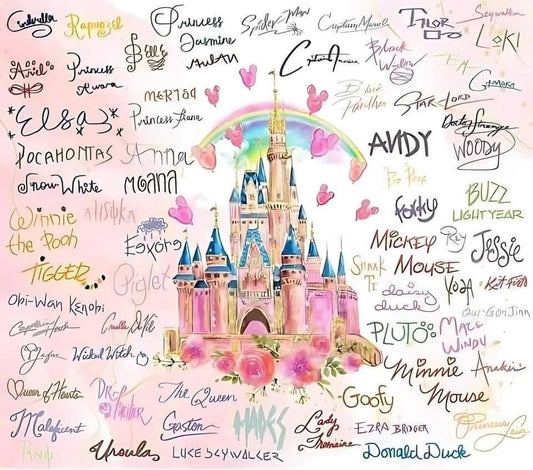 Cinderella
Rapunzel
Princess
Jasmine
Spider Man
Captain Marvel
Tylor
Skywalker
LOKI
Ariel
Princess
Aurora
Belle
MULAN
Captain America
Black
Widow
Gamora
MERIDA
Princess Tiana
Black
Panther
STAR-LORD
Doctor Strange
*Elsa*
ANDY
WOODY
POCAHONTAS
Anna
Bo Peep
Snow White
MOANA
forky
BUZZ
LIGHTYEAR
Winnie
the Pooh
Eeyore
MICKEY
MOUSE
Rey
Jessie
TIGGER
Piglet
Shaak
Ti
daisy
duck
YODA
Obi-Wan Kenobi
Qui-Gon Jinn
Captain Hook
Cruella De Vil
PLUTO
MACE
WINDY
Jafar
Wicked Witch
Minnie
Mouse
Anakin
Queen of Hearts
DR.
The Queen
Goofy
Maleficent
Gaston
HADES
Lady
Tremaine
EZRA BRIDGER
Princess
Leia
Ursula
LUKE SKYWALKER
Donald Duck